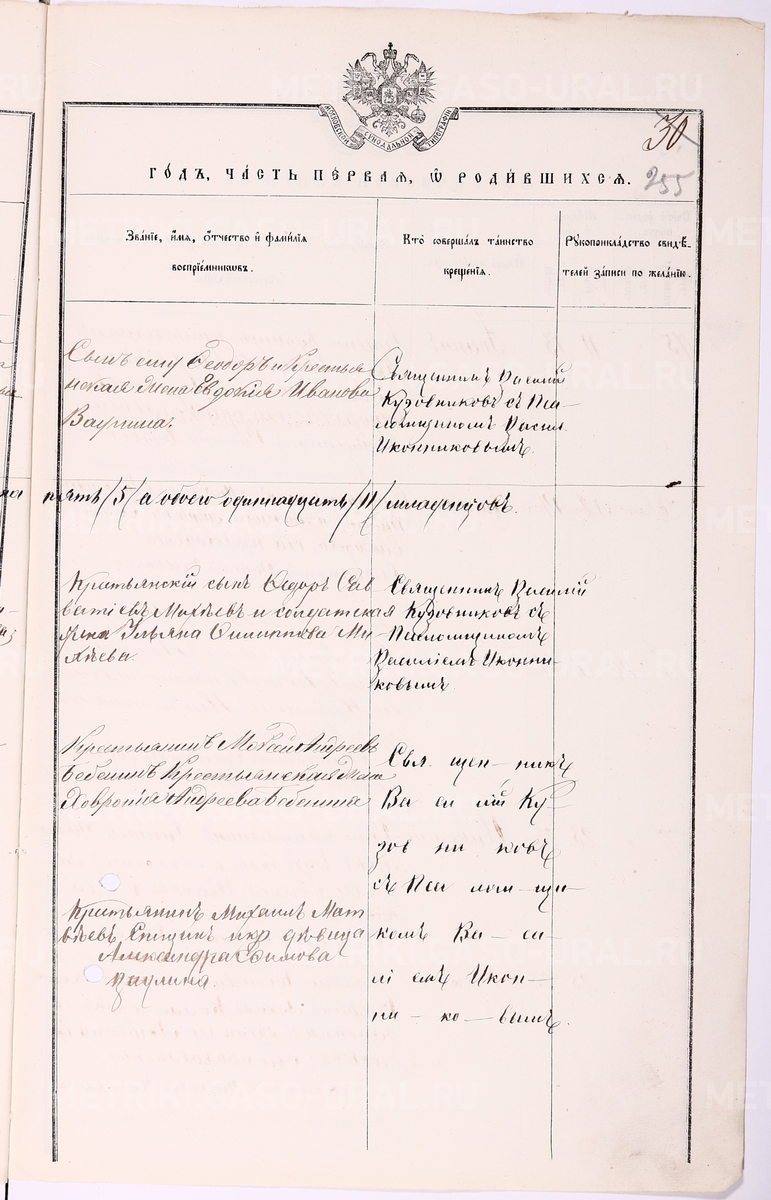 МОСКОВСКОЙ СѴНОДАЛЬНОЙ ТИПОГРАФІИ
30
255
ГО́ДЪ, ЧА́СТЬ ПЕ́РВАЯ, Ѿ РОДИ́ВШИХСЯ.
Зва́ніе, и҆́мя, ѻ҆́тчество и҆ фами́лія
воспріе́мниковъ.
Кто̀ соверша́лъ та́инство
креще́нія.
Рꙋкоприкла́дство свидѣ́-
телей за́писи по жела́нію.
Сынъ ему Ѳеодоръ и Крестья
нская жена Евдокія Иванова
Ваулина.
Священникъ Василій
Кузовниковъ съ Пса-
ломщикомъ Васил.
Иконниковымъ.
пять /5/ а обоего одиннадцать /11/ младенцовъ.
Крестьянскій сынъ Ѳедоръ Сав
ватіевъ Михѣевъ и солдатская
жена Ульяна Филиппова Ми
хѣева.
Священникъ Василій
Кузовниковъ съ
Псаломщикомъ
Василіемъ Иконни-
ковымъ.
Крестьянинъ Андреевъ
Бабинъ Крестьянская жена
Хавронія Андреева
Свя щен-никъ
Ва си лій Ку-
зов ни ковъ
съ Пса лом-щи-
комъ Ва-си-
лі емъ Икон-
ни-ко-вымъ.
Крестьянинъ Михаилъ Мат
вѣевъ и кр дѣвица
Александра Ефимова
Ваулина.
METRIKI.GASO-URAL.RU